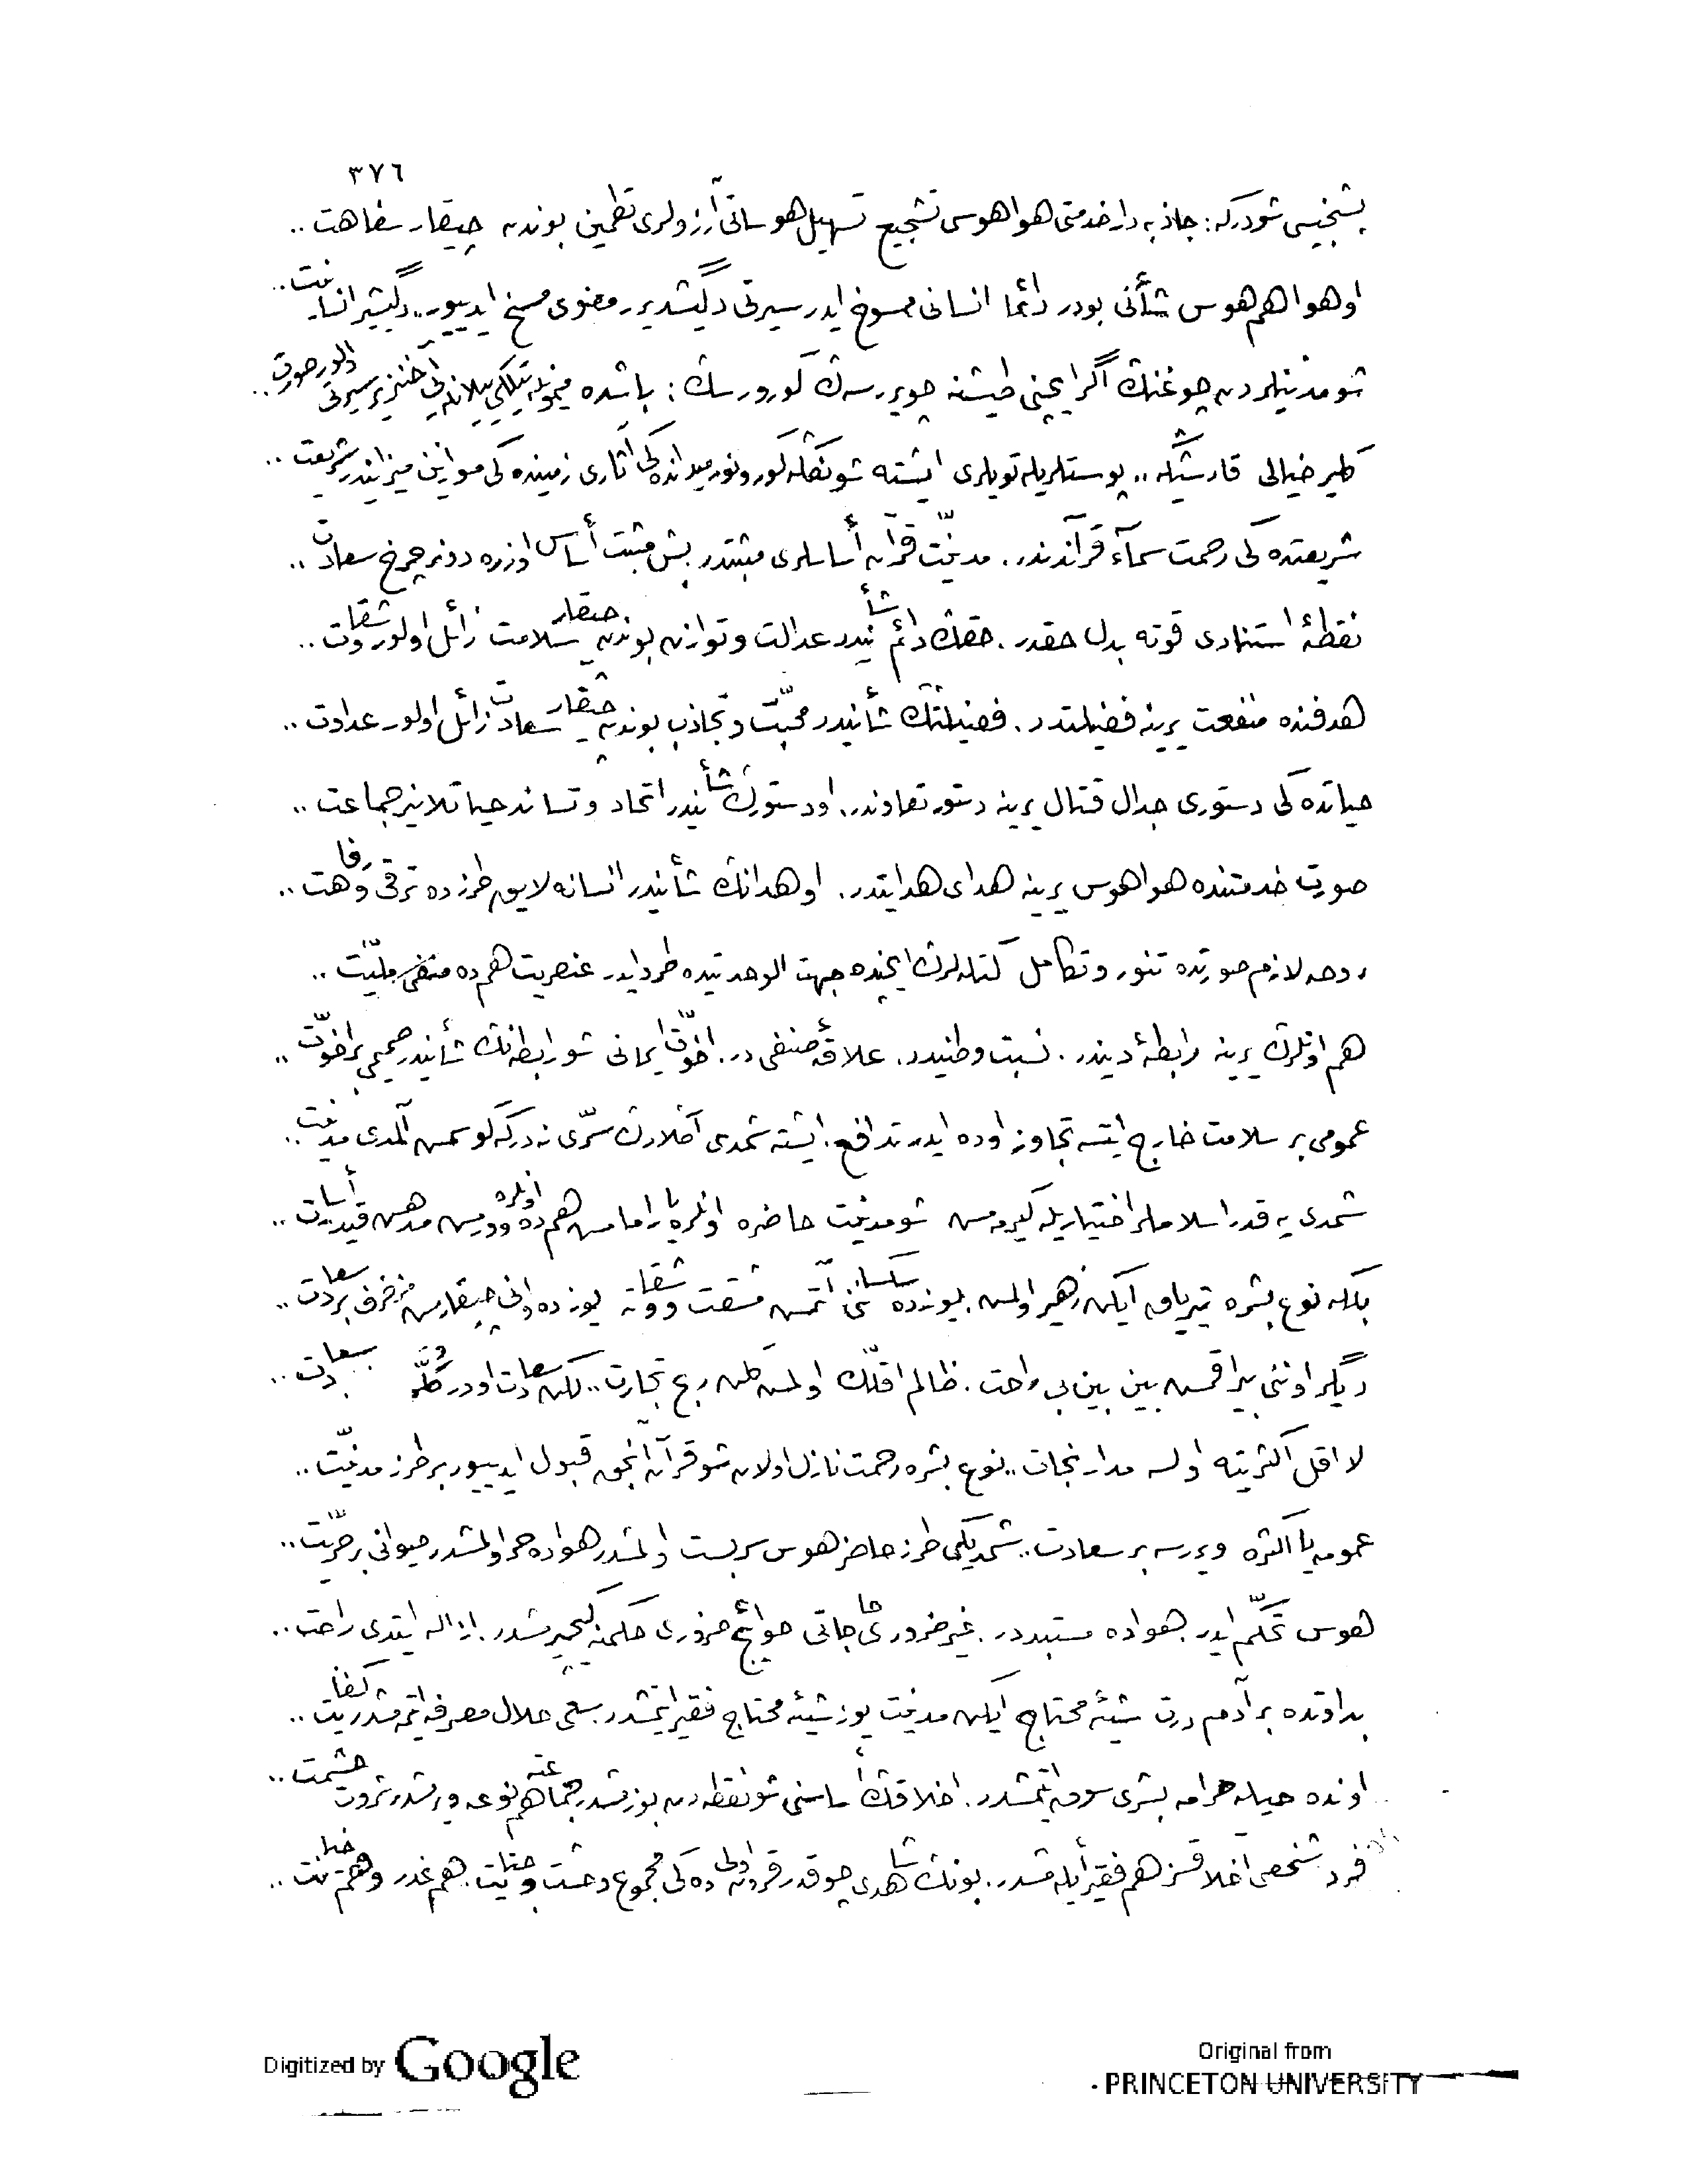 ٣٧٦
بشنجیسی شودرکه: جاذبه‌دار خدمتی هوا هوس تشجیع تسهیل هوساتی آرزولری تطمین بوندن چیقار سفاهت ..
او هوا هم هوس شأنی بودر دائما انسانی ممسوخ ایدر سیرتی دگیشدیرر معنوی مسخ ایدییور.. دگیشیر انسانیت ..
شو مدنیلردن چوغنك اگر ایچنی طیشنه چویررسه‌ڭ گورورسڭ: باشده میمونله تیلکی ییلانله آیی خنزیر سیرتی اولور صورت ..
گلیر خیالی قارشیڭه.. پوستلریله تویلری ایشته شونڭله گورونور میدانده‌کی آثاری زمینده‌کی موازین میزانیدر شریعت ..
شریعتده‌کی رحمت سمآء قرآندندر. مدنیّت قرآن أساسلری مثبتدر بش مثبت أساس اوزره دونر چرخ سعادت ..
نقطهٔ استنادی قوته بدل حقدر. حقڭ دائم شأنیدر عدالت و توازن بوندن چیقار سلامت زائل اولور شقاوت ..
هدفنده منفعت یرینه فضیلتدر. فضیلتڭ شأنیدر محبّت و تجاذب بوندن چیقار سعادت زائل اولور عداوت ..
حیاتده‌کی دستوری جدال قتال یرینه دستور تعاوندر. او دستورڭ شأنیدر اتحاد و تساند حیاتلانیر جماعت ..
صورت خدمتنده هوا هوس یرینه هدای هدایتدر. او هدانڭ شأنیدر انسانه لایق طرزده ترقی و رفاهت ..
روحه لازم صورتده تنور و تکامل کتله‌لرڭ ایچنده جهت الوحدتیده طرد ایدر عنصریت هم ده منفی ملیّت ..
هم اونلرڭ یرینه رابطهٔ دیندر. نسبت وطنیدر. علاقهٔ صنفی در. اخوّت ایمانی شو رابطه‌نڭ شأنیدر صمیمی بر اخوّت ..
عمومی بر سلامت خارج ایتسه تجاوز اوده ایدر تدافع. ایشته شمدی آڭلادڭ سرّی نه‌درکه کوسمش آلمدی مدنیت ..
شمدی یه قدر اسلاملر اختیاریله گیرمه‌مش شو مدنیت حاضره اونلره یاراماماش هم ده اونلره وورمش مدهش قید أسارت ..
بلکه نوع بشره تریاق ایکن زهیر اولمش. یوزده سکساننی آتمش مشقت و شقاوته یوزده اونی چیقارمش مزخرف بر سعادت ..
دیگر اوننی بیراقمش بین بین بی راحت. ظالم اقلّڭ اولمش گلن ربح تجارت.. لکن سعادت اودر کلّه سعادت ..
لااقل اکثریته اولسه مدار نجات.. نوع بشره رحمت نازل اولان شو قرآن آنجق قبول ایدییور بر طرز مدنیّت ..
عمومه یا اکثره ویررسه بر سعادت.. شمدیکی طرز حاضر هوس سربست اولمشدر هواده حر اولمشدر حیوانی بر حرّیت ..
هوس تحکّم ایدر. هواده مستبددر. غیر ضروری حاجاتی حوائج ضروری حکمنه گچیرمشدر. ازاله ایتدی راحت ..
بداوتده بر آدم درت شیئه محتاج ایکن مدنیت یوز شیئه محتاج فقیر ایتمشدر. سعی حلال مصرفه ایتمه‌مشدر کفایت ..
اونده حیله حرامه بشری سوق ایتمشدر. اخلاقڭ أساسنی شو نقطه‌دن بوزمشدر جماعته هم نوعه ویرمشدر ثروت حشمت ..
فرد شخصی اخلاقسز هم فقیر أیله‌مشدر. بونڭ شاهدی چوقدر قرون اولی ده‌کی مجموع وحشت و جنایت. هم غدر و هم خیانت ..
Digitized by Google
Original from
PRINCETON UNIVERSITY